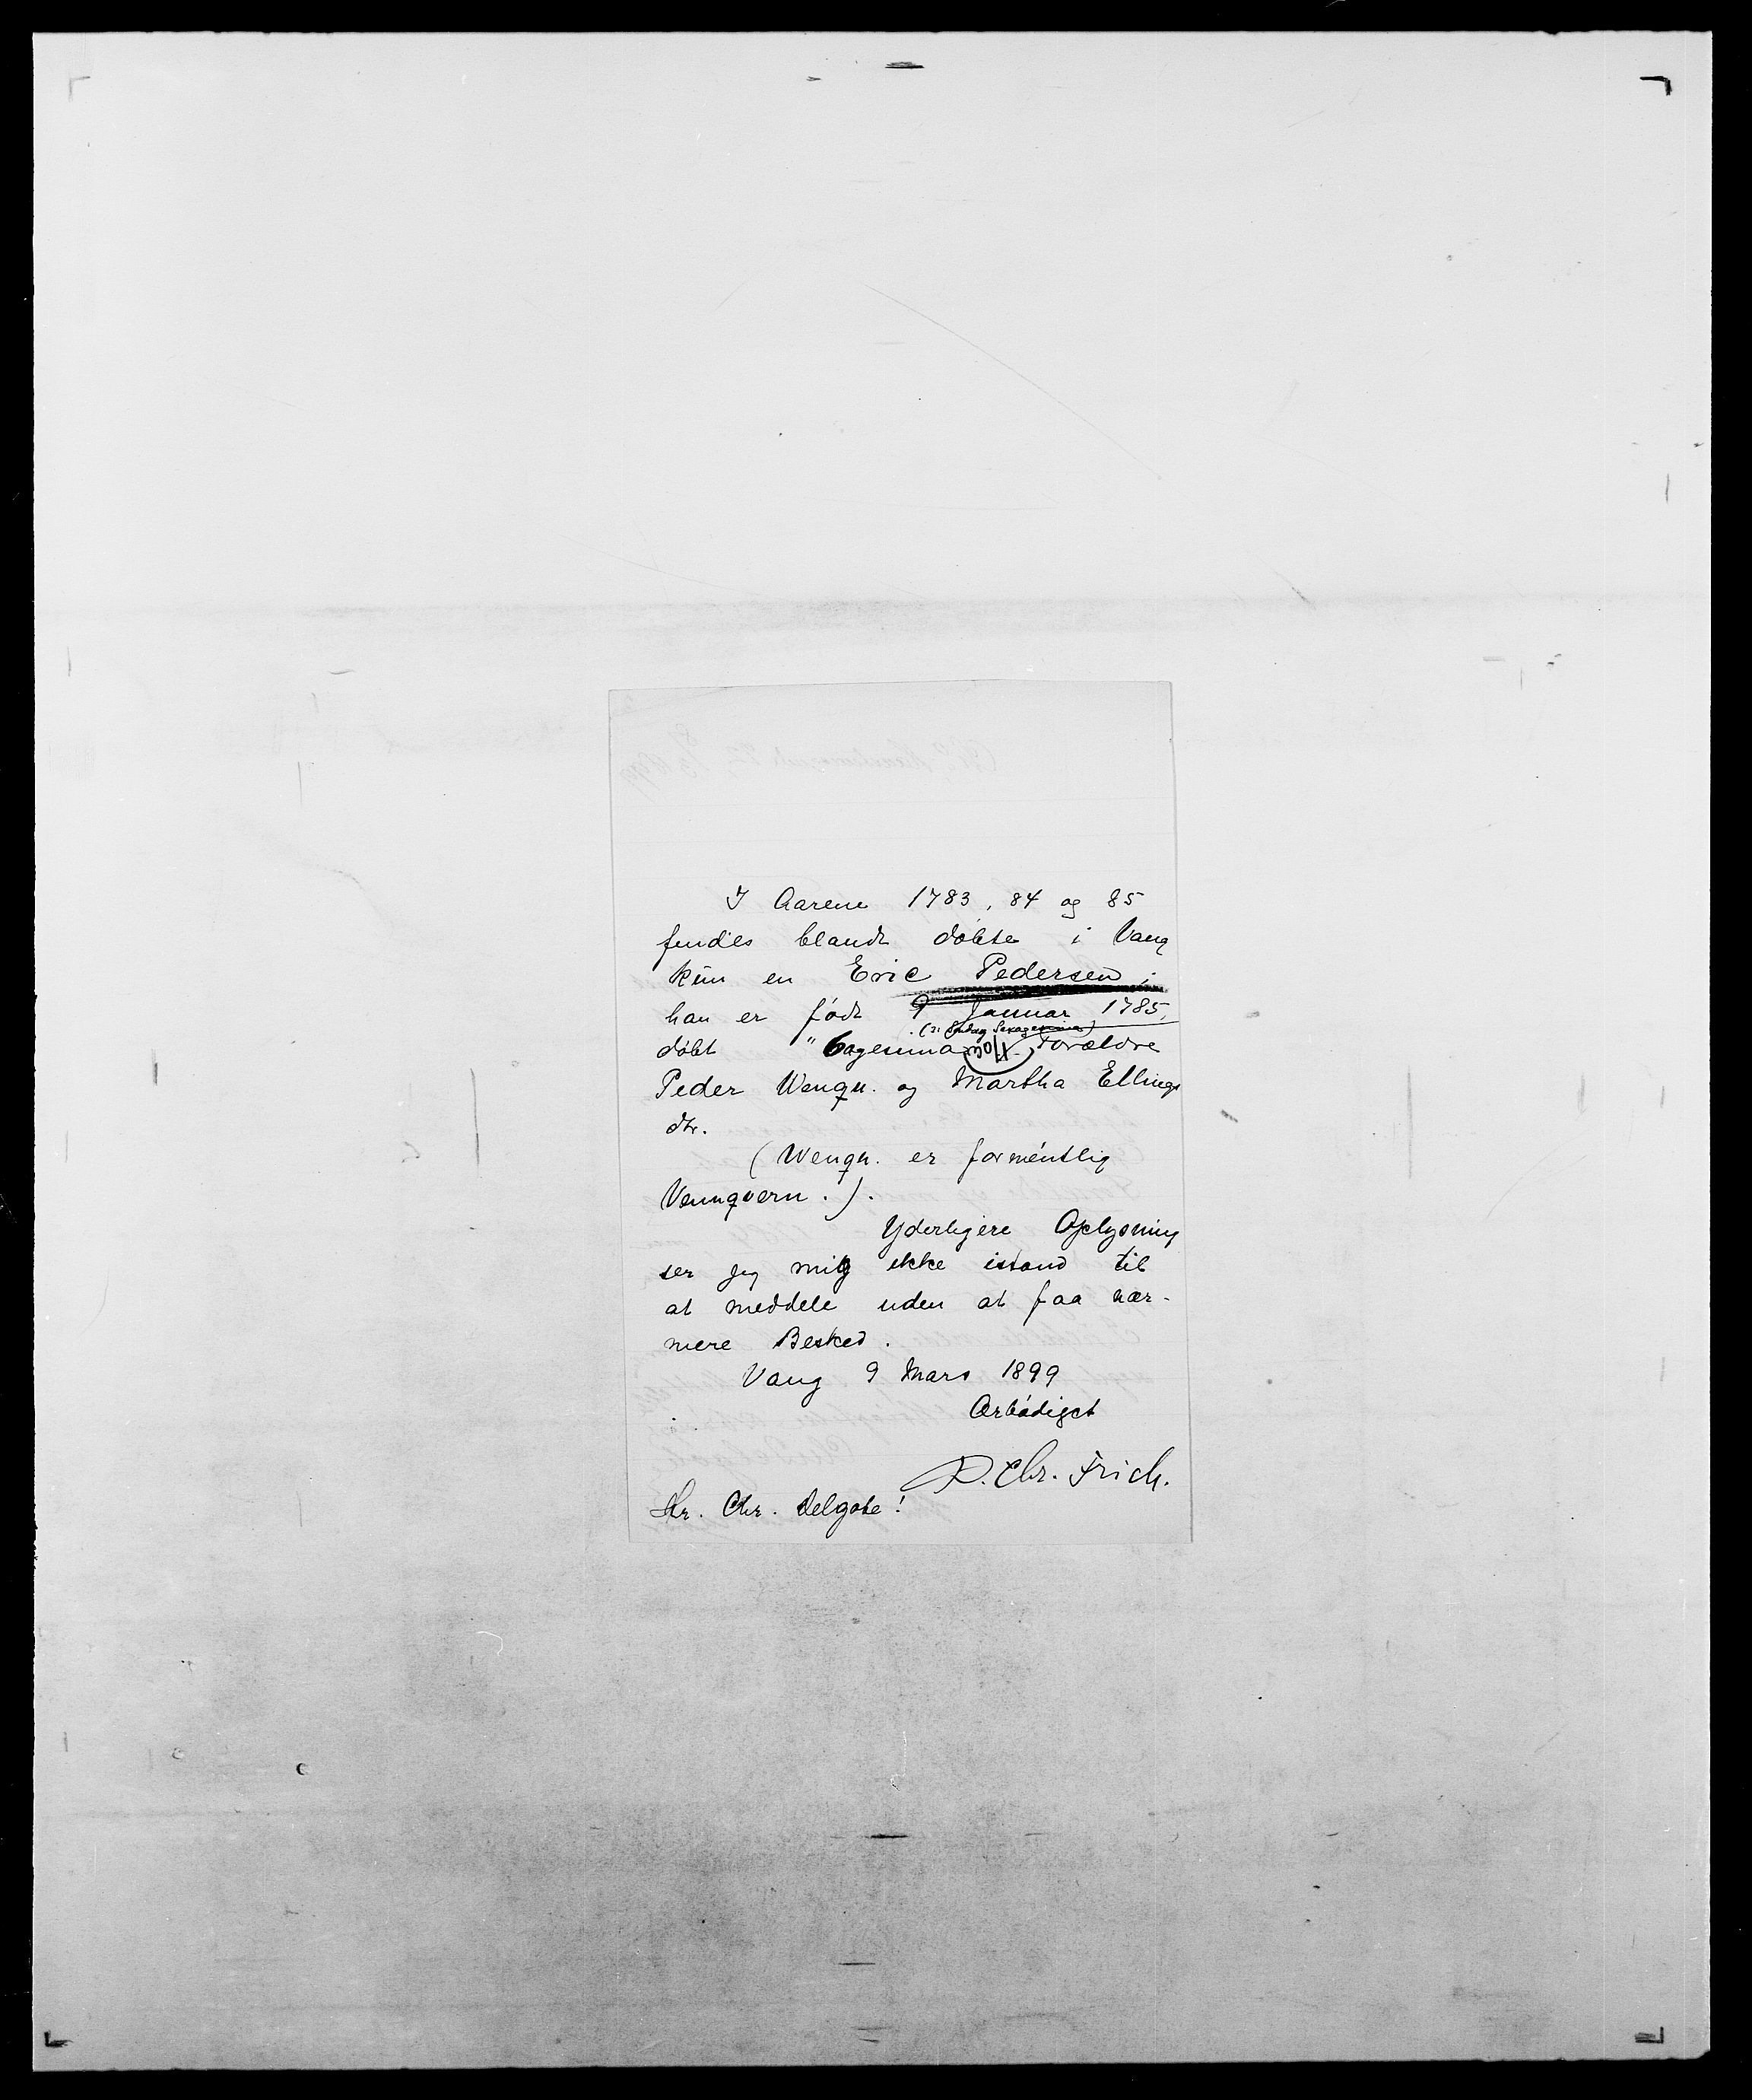 I Aarene 1783, 84 og 85
findes blandt døbte i Vang
kun en Eric Pedersen;
han er født 9 Januar 1785,
(ɔ: Søndag Sexagesima)
døbt "6agesima Forældre
Peder Wenqu. og Martha Ellings
dtr.
(Wenqu. er formentlig
Vennqvern.).
Yderligere Oplysning
ser jeg mig ikke istand til
at meddele uden at faa nær-
mere Besked.
Vang 9 Mars 1899
Ærbødigst
D. Chr. Frich.
Hr. Chr. Delgobe!